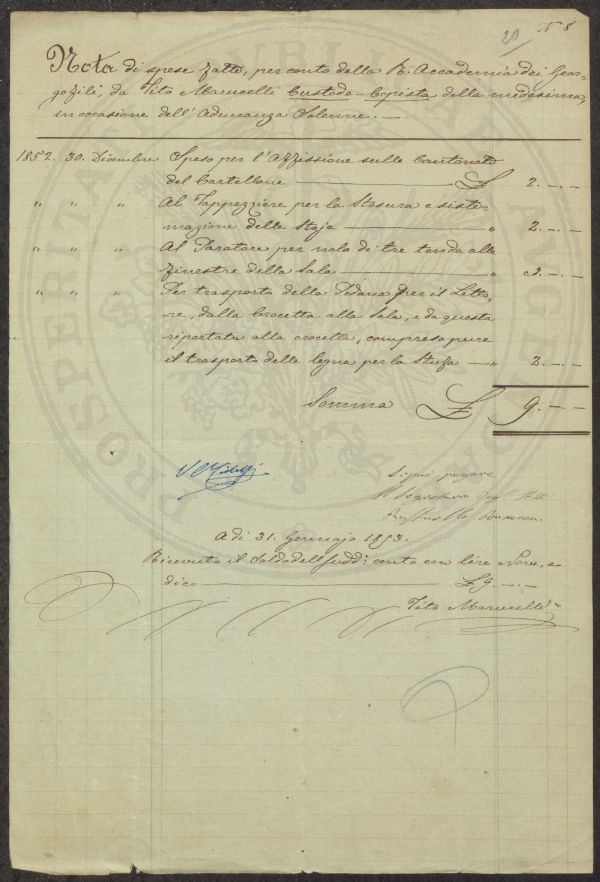 20 N 8
Nota di spese fatte, per conto della R. Accademia dei Geor-
gofili, da Tito Marucelli Custode-Copista della medesima,
in occasione dell'Adunanza Solenne. —
1852. 30. Dicembre Speso per l'Affissione sulle Cantonate
del Cartellone — £ 2. - . -
" " " Al Tappezziere per la Stesura e siste-
mazione delle Stoje — " 2. - . -
" " " Al Paratore per nolo di tre tende alle
finestre della Sala — " 3. - . -
" " " Per trasporto della Pedana per il Letto-
re, dalla Crocetta alla Sala, e da questa
riportata alla crocetta, compreso pure
il trasporto delle legna per la Stufa — " 2. - . -
Somma £ 9. - -
Signi pagare
Il Segretario degl' Atti
A dì 31. Gennajo 1853.
Ricevuto il Saldo del sudd: conto con lire Nove, e
dico — £ 9. - . -
Tito Marucelli
PROSPERITATI PUBLICAE AUGENDAE